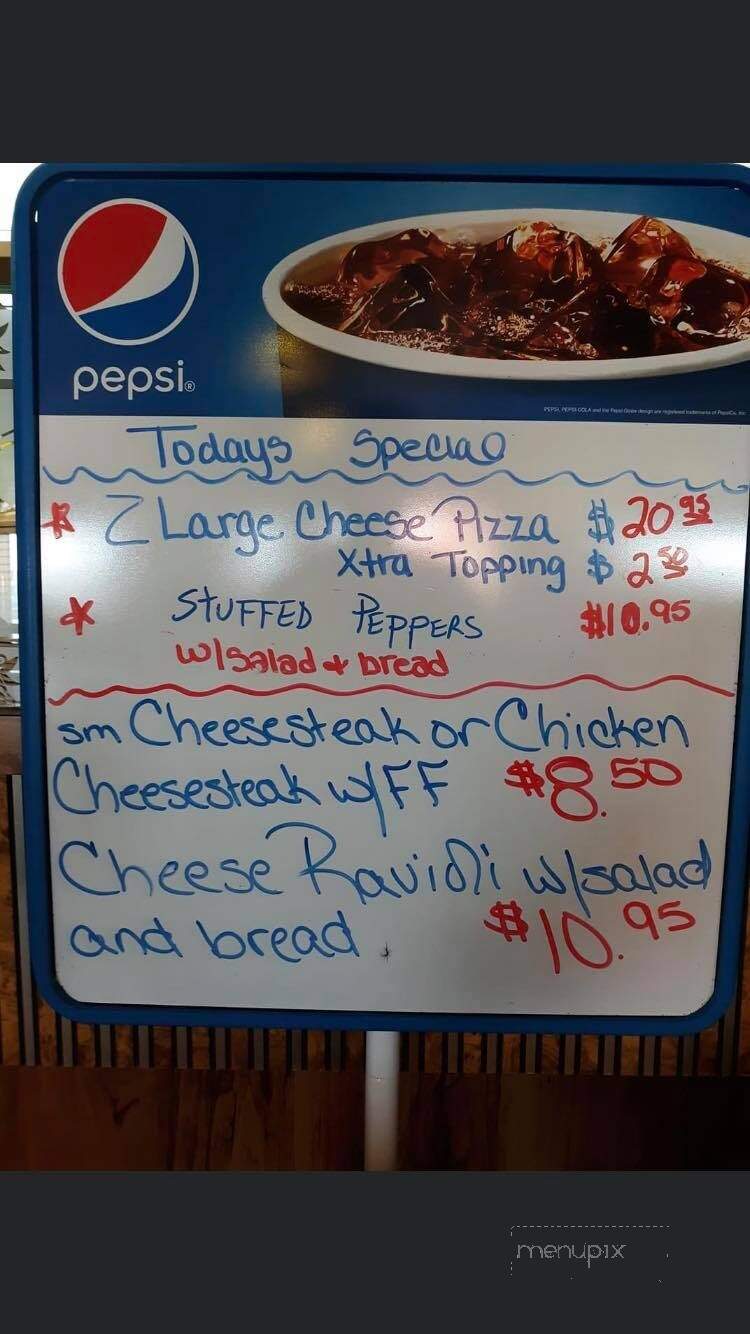 pepsi®
PEPSI, PEPSI-COLA and the Pepsi Globe design are registered trademarks of PepsiCo, Inc.
Todays Special
* 2 Large Cheese Pizza $20 95
Xtra Topping $2 50
* STUFFED PEPPERS $10.95
w/salad + bread
sm Cheesesteak or Chicken
Cheesesteak w/FF $8.50
Cheese Ravioli w/salad
and bread. $10.95
menupix